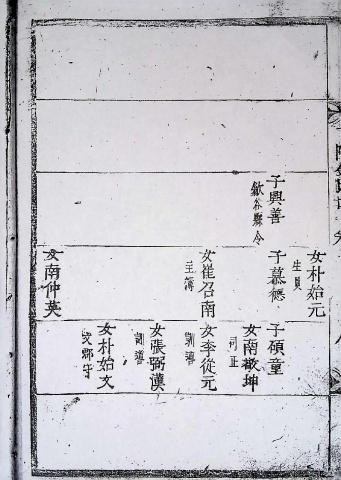 子興善
歙谷縣令
女朴始元
生員
子慕德
女崔召南
主簿
女南仲英
子碩童
女南敬坤
司正
女李從元
訓導
女張弼漢
訓導
女朴始文